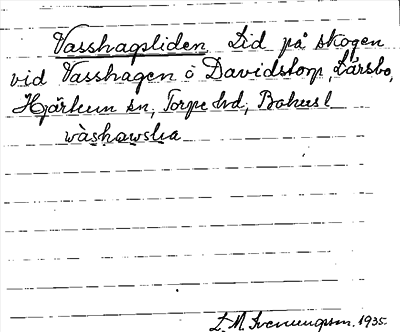 Vasshagsliden Lid på skogen
vid Vasshagen å Davidstorp, Lärsbo,
Hjärtum sn, Torpe hd, Bohusl
vàshawslia
L. M. Svenungsson. 1935.